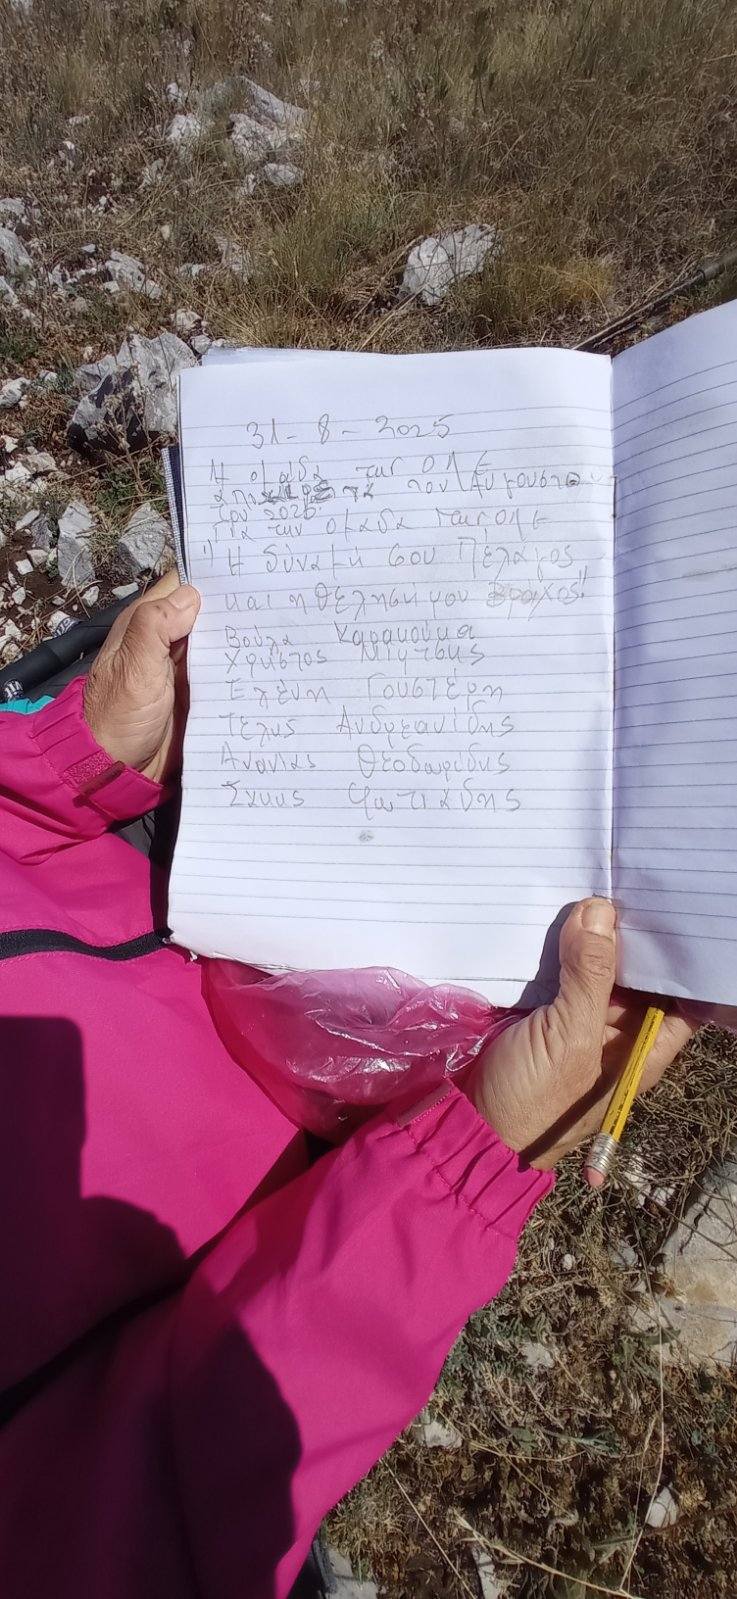 31-8-2025
Η ομάδα της ΟΠΕ
τον Αυγουστο
του 2025.
Για την ομαδα της ΟΠΕ
1) Η δύναμή σου Πέλαγος
και η θέλησή μου Βράχος!!
Βούλα Καρακούκα
Χρήστος Μίντσης
Ελένη Γουστέρη
Τέλης Ανδρεανίδης
Ανανίας Θεοδωρίδης
Σακης Φωτιαδης